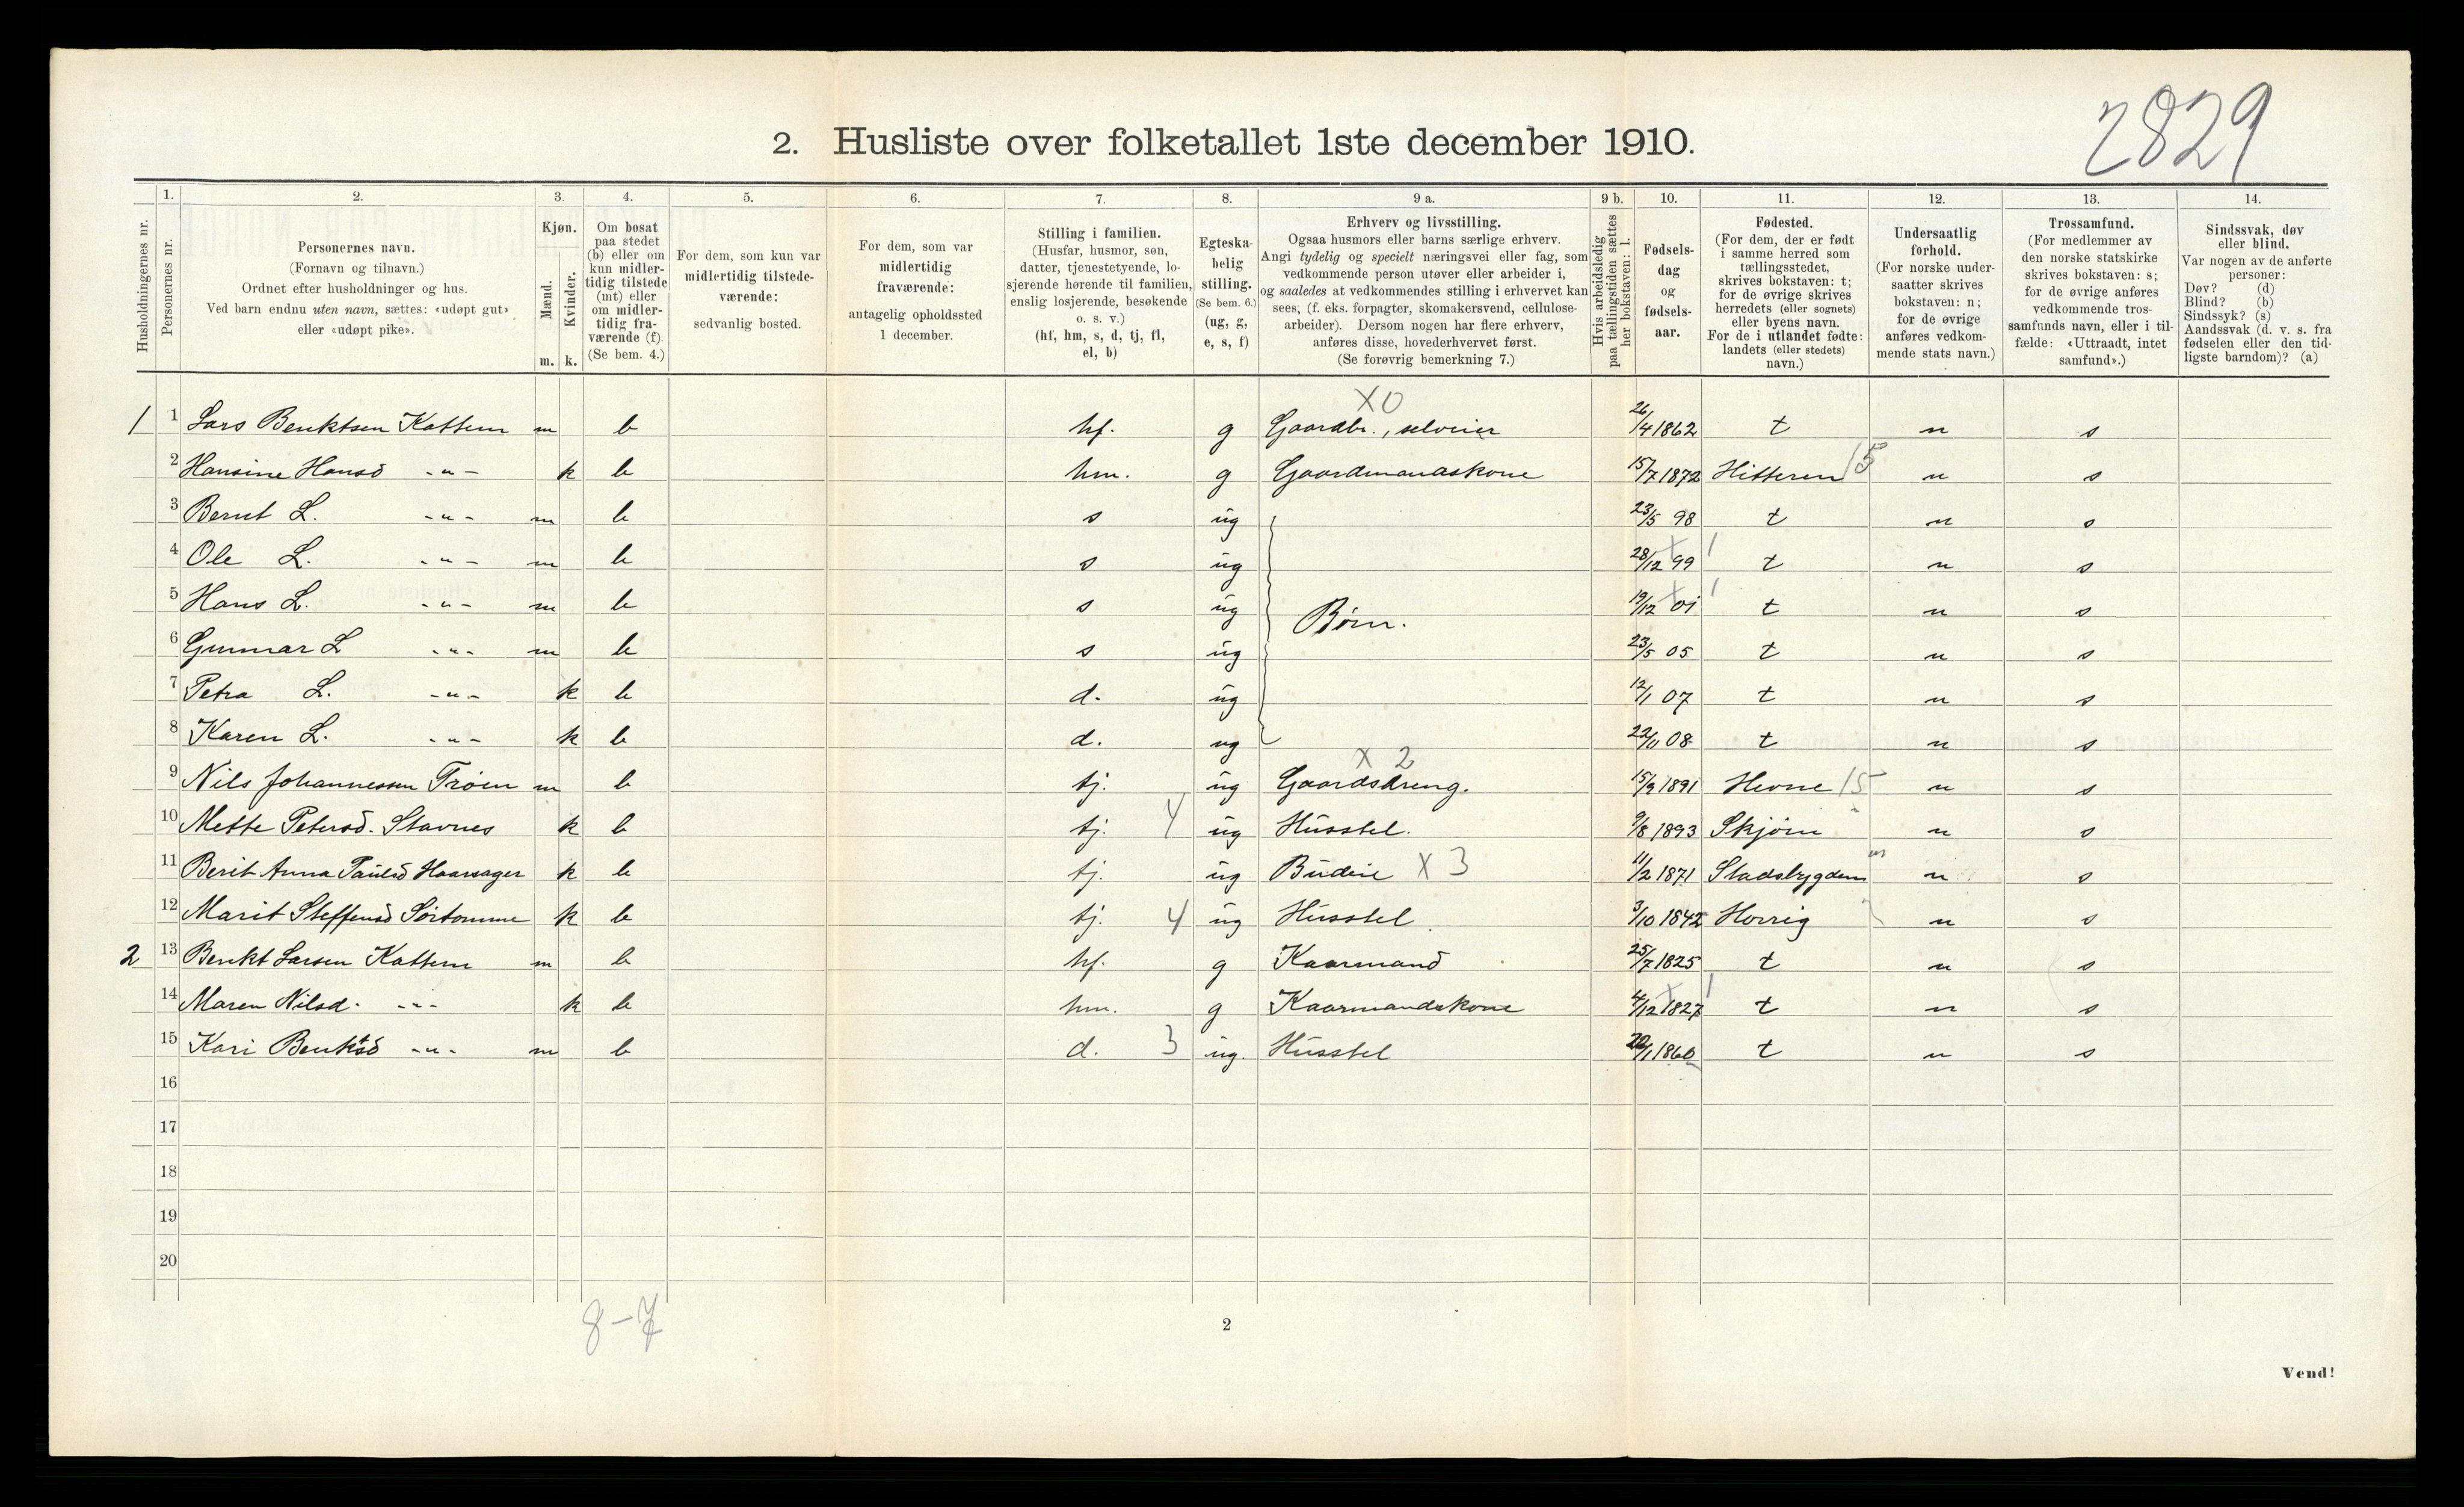 2829
2. Husliste over folketallet 1ste december 1910.
Husholdningernes nr.
1.
Personernes nr.
2.
Personernes navn.
(Fornavn og tilnavn.)
Ordnet efter husholdninger og hus.
Ved barn endnu uten navn, sættes: «udøpt gut»
eller «udøpt pike».
3.
Kjøn.
Mænd.
Kvinder.
m. k.
4.
Om bosat
paa stedet
(b) eller om
kun midler-
tidig tilstede
(mt) eller
om midler-
tidig fra-
værende (f).
(Se bem. 4.)
5.
For dem, som kun var
midlertidig tilstede-
værende:
sedvanlig bosted.
6.
For dem, som var
midlertidig
fraværende:
antagelig opholdssted
1 december.
7.
Stilling i familien.
(Husfar, husmor, søn,
datter, tjenestetyende, lo-
sjerende hørende til familien,
enslig losjerende, besøkende
o. s. v.)
(hf, hm, s, d, tj, fl,
el, b)
8.
Egteska-
belig
stilling.
(Se bem. 6.)
(ug, g,
e, s, f)
9 a.
Erhverv og livsstilling.
Ogsaa husmors eller barns særlige erhverv.
Angi tydelig og specielt næringsvei eller fag, som
vedkommende person utøver eller arbeider i,
og saaledes at vedkommendes stilling i erhvervet kan
sees, (f. eks. forpagter, skomakersvend, cellulose-
arbeider). Dersom nogen har flere erhverv,
anføres disse, hovederhvervet først.
(Se forøvrig bemerkning 7.)
9 b.
Hvis arbeidsledig
paa tællingstiden sættes
her bokstaven: l.
10.
Fødsels-
dag
og
fødsels-
aar.
11.
Fødested.
(For dem, der er født
i samme herred som
tællingsstedet,
skrives bokstaven: t;
for de øvrige skrives
herredets (eller sognets)
eller byens navn.
For de i utlandet fødte:
landets (eller stedets)
navn.)
12.
Undersaatlig
forhold.
(For norske under-
saatter skrives
bokstaven: n;
for de øvrige
anføres vedkom-
mende stats navn.)
13.
Trossamfund.
(For medlemmer av
den norske statskirke
skrives bokstaven: s;
for de øvrige anføres
vedkommende tros-
samfunds navn, eller i til-
fælde: «Uttraadt, intet
samfund».)
14.
Sindssvak, døv
eller blind.
Var nogen av de anførte
personer:
Døv? (d)
Blind? (b)
Sindssyk? (s)
Aandssvak (d. v. s. fra
fødselen eller den tid-
ligste barndom)? (a)
X0
1 1 Lars Benktsen Kattem m b hf. g Gaardbr., selveier 26/4 1862 t n s
2 Hansine Hansd -"- k b hm. g Gaardmandskone 15/7 1872 Hitteren 15 n s
3 Bernt L. -"- m b s ug 23/5 98 t n s
4 Ole L. -"- m b s ug 28/12 99 t n s
5 Hans L. -"- m b s ug Børn. 19/12 01 t n s
6 Gunnar L -"- m b s ug 23/5 05 t n s
7 Petra L. -"- k b d. ug 12/1 07 t n s
8 Karen L. -"- k b d. ug 22/11 08 t n s
X 2
9 Nils Johannessen Trøen m b tj. ug Gaardsdreng. 15/9 1891 Hevne 15 n s
10 Mette Petersd. Stavnes k b tj. 4 ug Husstel. 9/8 1893 Skjørn n s
11 Berit Anna Paulsd Haarsager k b tj. ug Budeie X 3 11/2 1871 Stadsbygden n s
12 Marit Steffensd Sørtømme k b tj. 4 ug Husstel. 3/10 1842 Horrig n s
2 13 Benkt Larsen Kattem m b hf. g Kaarmand 25/7 1825 t n s
14 Maren Nilsd. -"- k b hm. g Kaarmandskone 4/12 1827 t n s
15 Kari Benktsd -"- m b d. 3 ug. Husstel 20/1 1860 t n s
16
17
18
19
20
8-7
2
Vend!